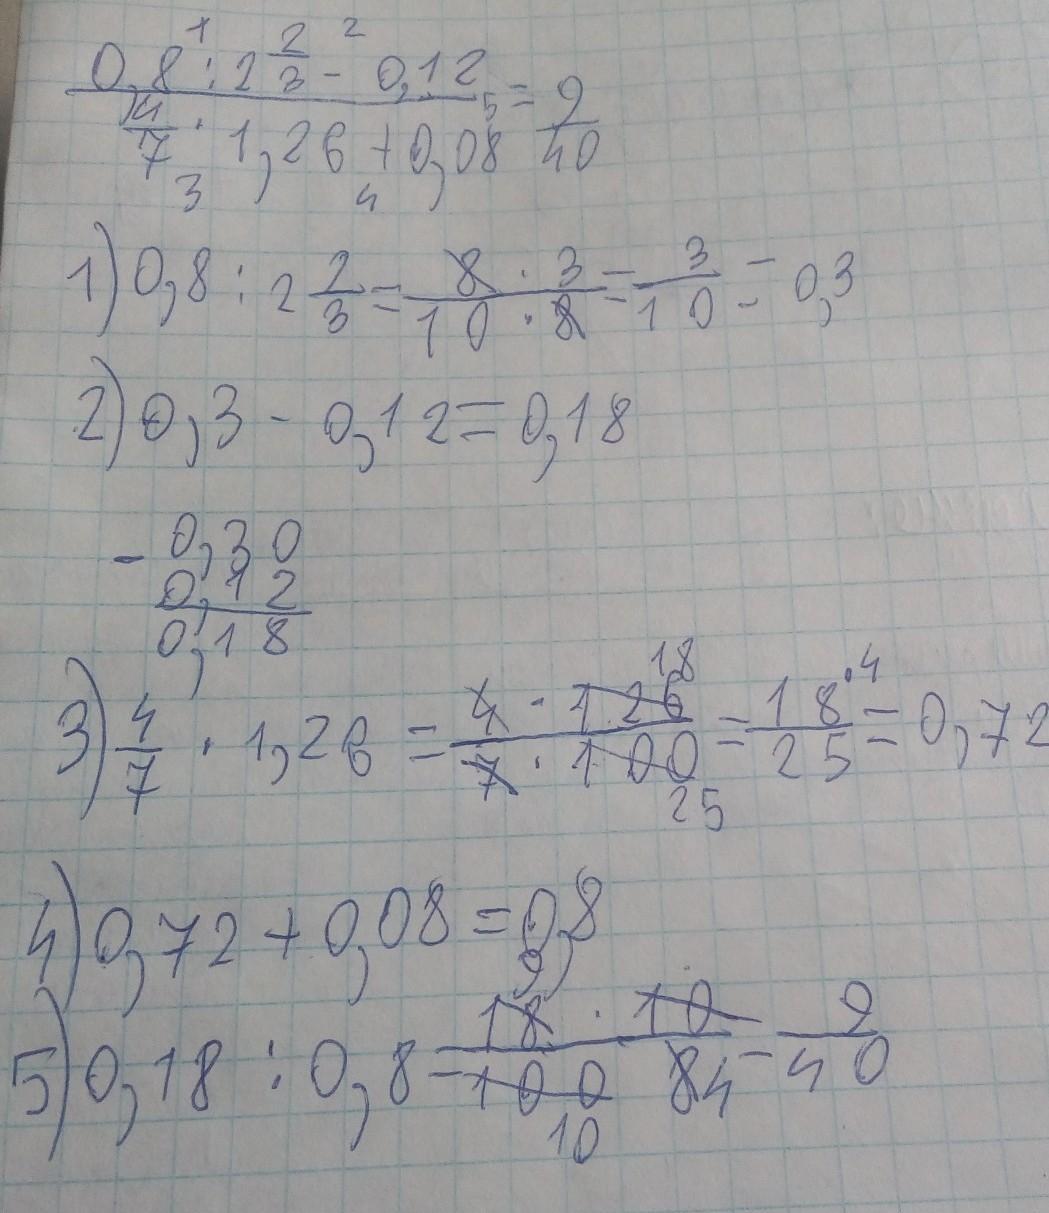 1 2
0,8 : 2 2/3 - 0,12
5 = 9/40
4/7 · 1,26 + 0,08
3 4
1) 0,8 : 2 2/3 = 8 · 3 / 10 · 8 = 3/10 = 0,3
2) 0,3 - 0,12 = 0,18
- 0,30
0,12
0,18
18
3) 4/7 · 1,26 = 4 · 126 / 7 · 100 = 18·4 / 25 = 0,72
25
4) 0,72 + 0,08 = 0,8
9
5) 0,18 : 0,8 = 18 · 10 / 100 8 4 = 9/40
10